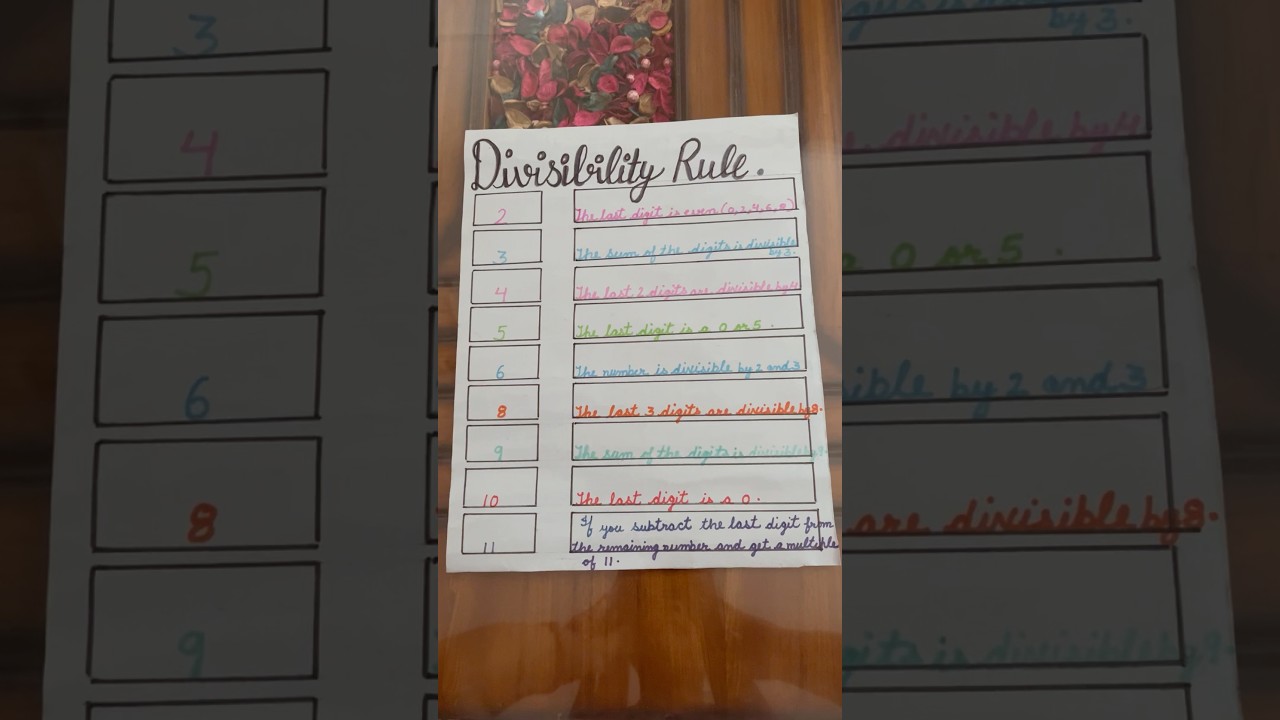 Divisibility Rule.
2 The last digit is even (0,2,4,6,8)
3 The sum of the digits is divisible
by 3.
4 The last 2 digits are divisible by 4
5 The last digit is a 0 or 5.
6 The number is divisible by 2 and 3
8 The last 3 digits are divisible by 8.
9 The sum of the digits is divisible by 9.
10 The last digit is a 0.
11 If you subtract the last digit from
the remaining number and get a multiple
of 11.